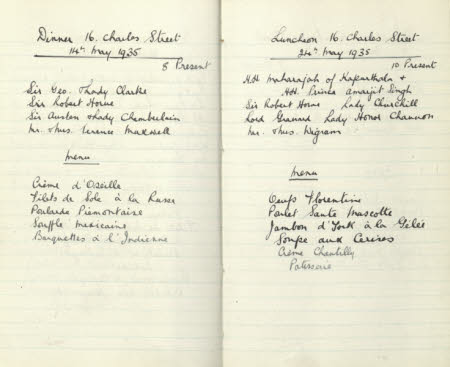 Dinner 16. Charles Street
14th May 1935
8 Present
Sir Geo. & Lady Clarke
Sir Robert Horne
Sir Austen & Lady Chamberlain
Mr. & Mrs. Terence Maxwell
Menu
Crème d'Oseille
Filets de Sole à la Russe
Poularde Piemontaise
Souffle Mexicaine
Barquettes à l'Indienne
Luncheon 16. Charles Street
24th May 1935
10 Present
H.H. Maharajah of Kapurthala &
H.H. Prince Amarjit Singh
Sir Robert Horne Lady Churchill
Lord Granard Lady Honor Channon
Mr. & Mrs. Wigram
Menu
Oeufs Florentine
Poulet Sauté Mascotte
Jambon d'York à la Gelée
Soupe aux Cerises
Crème Chantilly
Patisserie